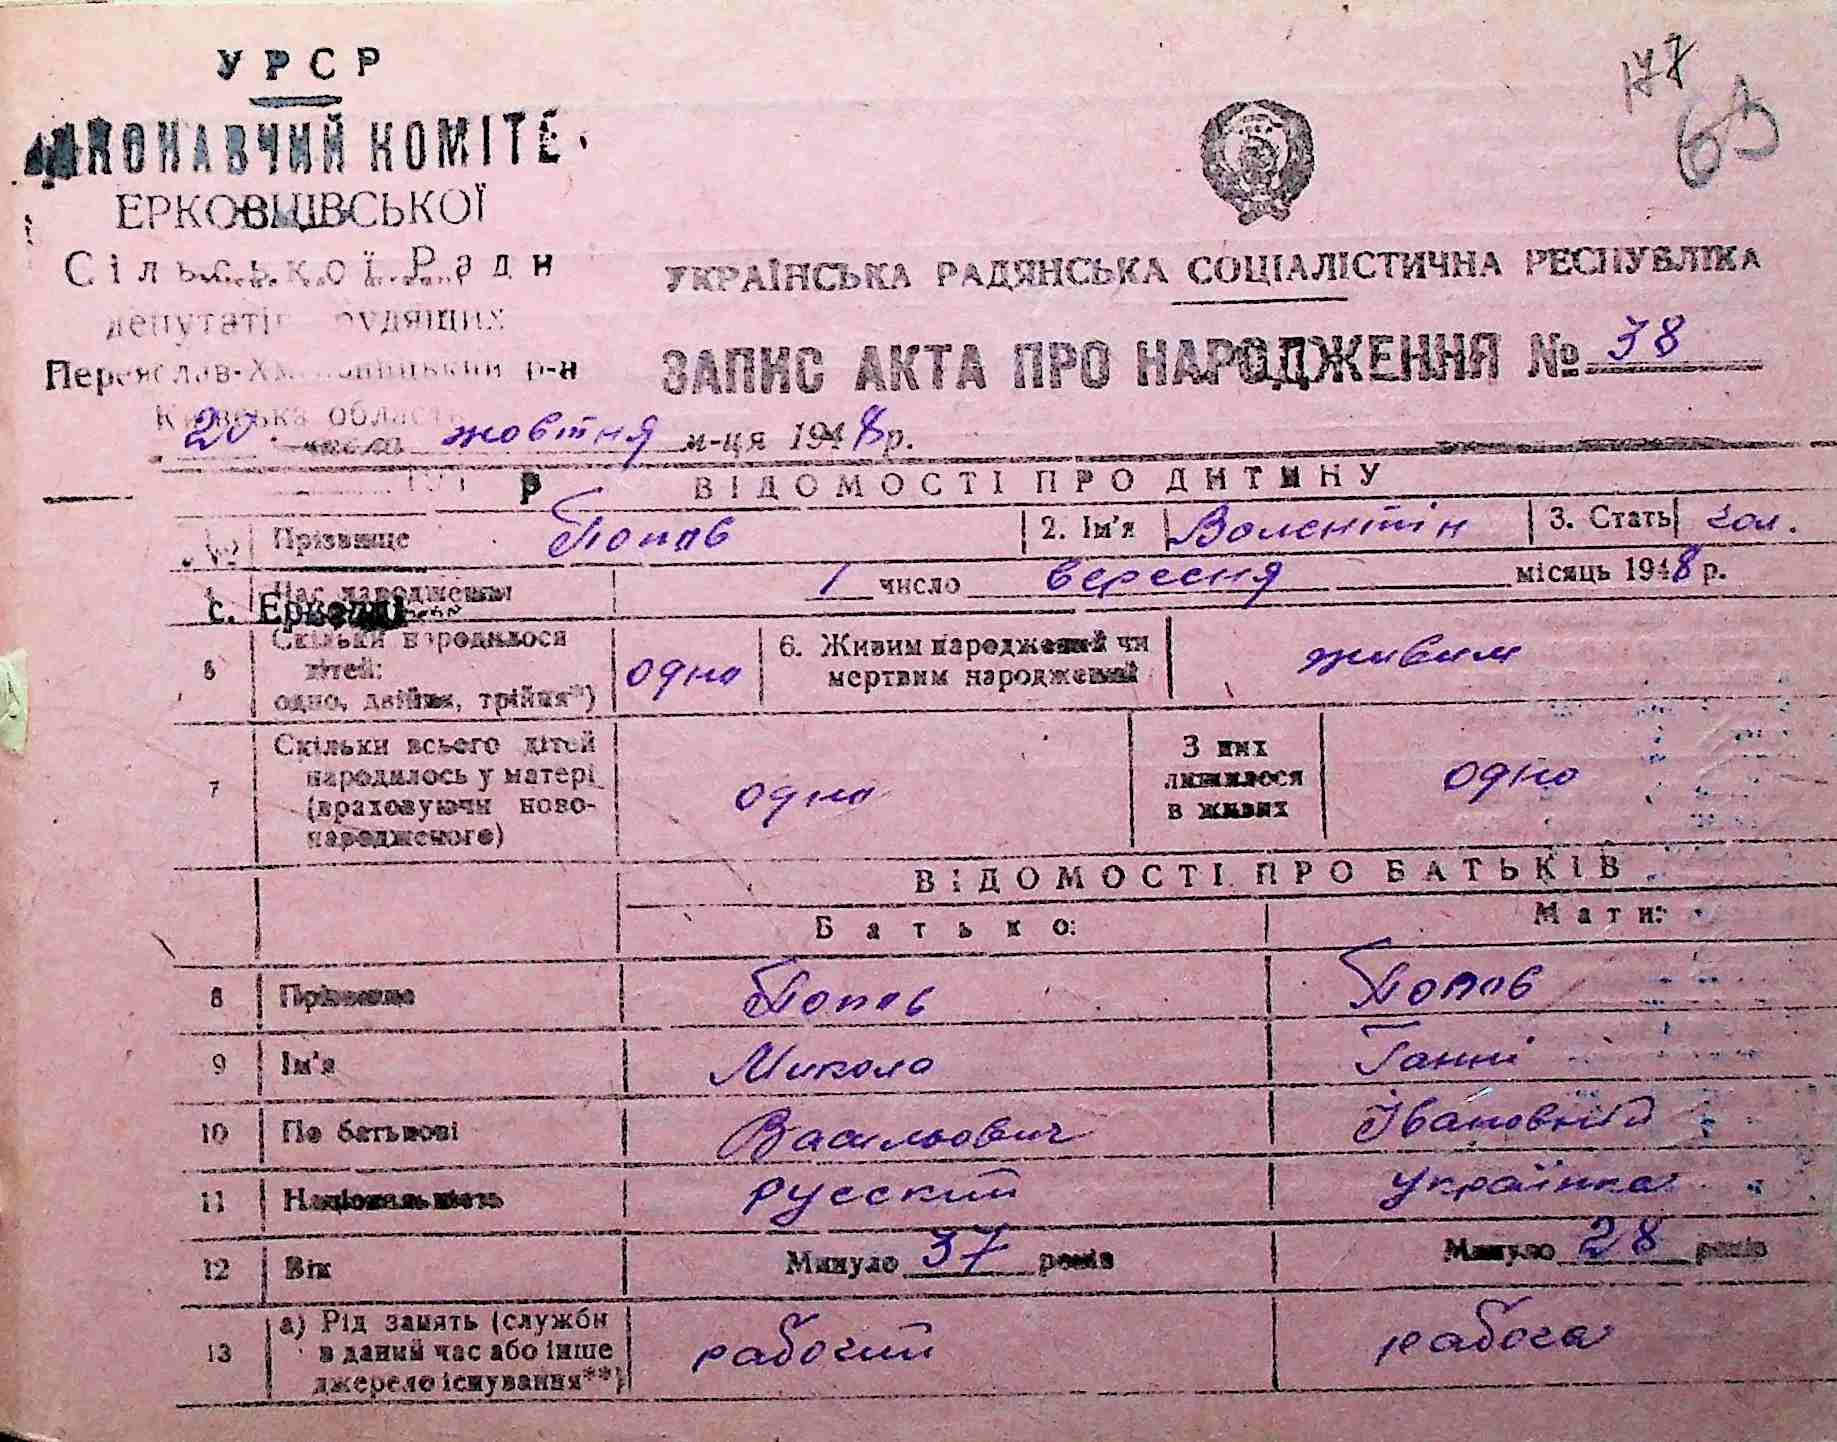 УРСР
ВИКОНАВЧИЙ КОМІТЕ
ЕРКОВЦІВСЬКОЇ
Сільської Ради
депутатів трудящих
Переяслав-Хмельницький р-н
Київська область
177
63
УКРАЇНСЬКА РАДЯНСЬКА СОЦІАЛІСТИЧНА РЕСПУБЛІКА
ЗАПИС АКТА ПРО НАРОДЖЕННЯ № 38
20 числа жовтня м-ця 1948 р.
ВІДОМОСТІ ПРО ДИТИНУ
Прізвище Попов 2. Ім'я Валентін 3. Стать чол.
Час народження 1 число вересня місяць 1948 р.
с. Ерковці
5 Скільки народилося дітей: одно, двійня, трійня*) одно 6. Живим народжений чи мертвим народжений живим
7 Скільки всього дітей народилось у матері (враховуючи ново-народженого) одно З них лишилося в живих одно
ВІДОМОСТІ ПРО БАТЬКІВ
Батько: Мати:
8 Прізвище Попов Попов
9 Ім'я Микола Ганні
10 По батькові Васильович Івановній
11 Національність русский українка
12 Вік Минуло 37 років Минуло 28 років
13 а) Рід занять (служби в даний час або інше джерело існування**) рабочий рабоча